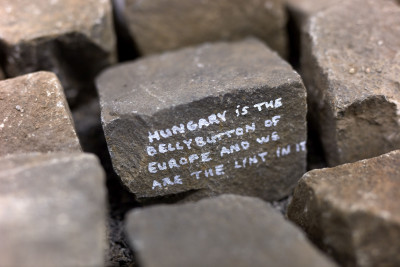 HUNGARY iS THE
BELLYBUTTON OF
EUROPE AND WE
ARE THE LINT IN IT